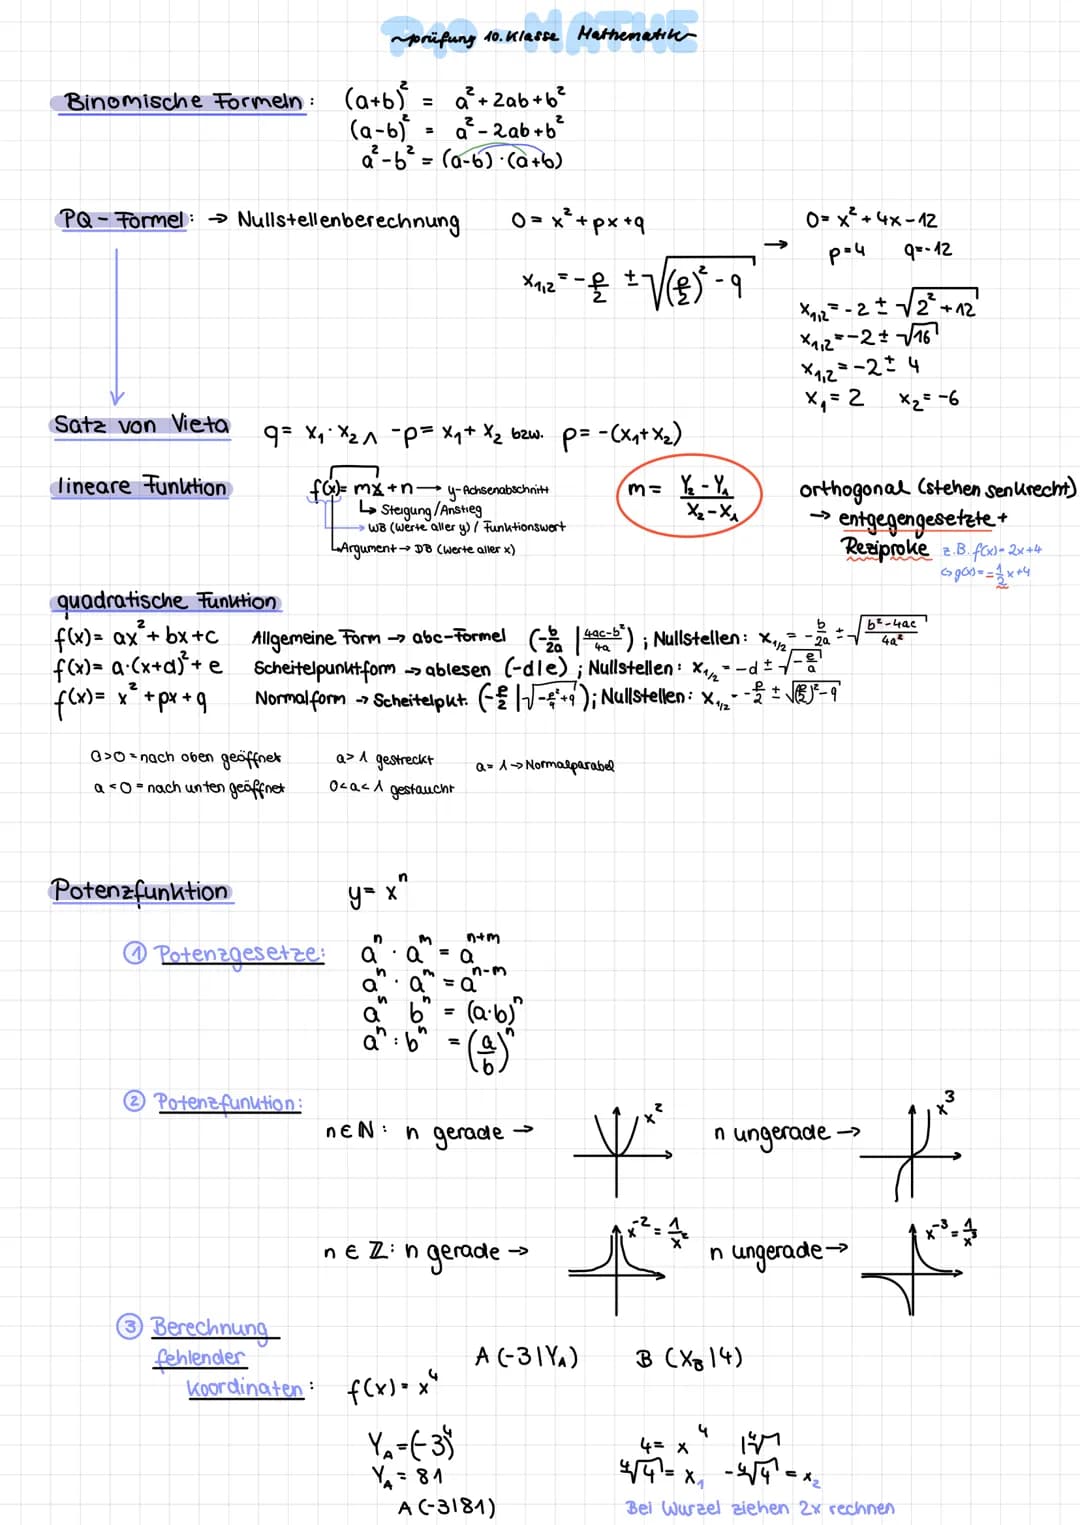 P10-MATHE
~prüfung 10. Klasse Mathematik~
Binomische Formeln: (a+b)² = a² + 2ab + b²
(a-b)² = a² - 2ab + b²
a² - b² = (a-b) · (a+b)
PQ-Formel: → Nullstellenberechnung 0 = x² + px + q → 0 = x² + 4x - 12
p = 4 q = -12
x₁,₂ = -p/2 ± √((p/2)² - q)
x₁,₂ = -2 ± √(2² + 12)
x₁,₂ = -2 ± √16
x₁,₂ = -2 ± 4
x₁ = 2 x₂ = -6
Satz von Vieta q = x₁ · x₂ ∧ -p = x₁ + x₂ bzw. p = -(x₁ + x₂)
lineare Funktion f(x) = mx + n → y-Achsenabschnitt
↳ Steigung/Anstieg
→ WB (Werte aller y) / Funktionswert
Argument → DB (Werte aller x)
m = (Y₂ - Y₁)/(X₂ - X₁)
orthogonal (stehen senkrecht)
→ entgegengesetzte +
Reziproke z.B. f(x) = 2x+4
↳ g(x) = -½x+4
quadratische Funktion
f(x) = ax² + bx + c Allgemeine Form → abc-Formel (-b/2a | (4ac-b²)/4a) ; Nullstellen: x₁/₂ = -b/2a ± √((b²-4ac)/4a²)
f(x) = a·(x+d)² + e Scheitelpunktform → ablesen (-d|e) ; Nullstellen: x₁/₂ = -d ± √(-e/a)
f(x) = x² + px + q Normalform → Scheitelpkt. (-p/2 | √(-p²/4+q)) ; Nullstellen: x₁/₂ = -p/2 ± √((p/2)²-q)
a>0 = nach oben geöffnet a>1 gestreckt a=1 → Normalparabel
a<0 = nach unten geöffnet 0<a<1 gestaucht
Potenzfunktion y = xⁿ
① Potenzgesetze: aⁿ · aᵐ = aⁿ⁺ᵐ
aⁿ · aᵐ = aⁿ⁻ᵐ
aⁿ bⁿ = (a·b)ⁿ
aⁿ : bⁿ = (a/b)ⁿ
② Potenzfunktion:
n∈ℕ: n gerade → x² n ungerade → x³
n∈ℤ: n gerade → x⁻² = 1/x² n ungerade → x⁻³ = 1/x³
③ Berechnung
fehlender
Koordinaten: f(x) = x⁴ A(-3|Y_A) B(X_B|4)
Y_A = (-3)⁴
Y_A = 81
A(-3|81)
4 = x⁴ |⁴√
⁴√4 = x₁ -⁴√4 = x₂
Bei Wurzel ziehen 2x rechnen